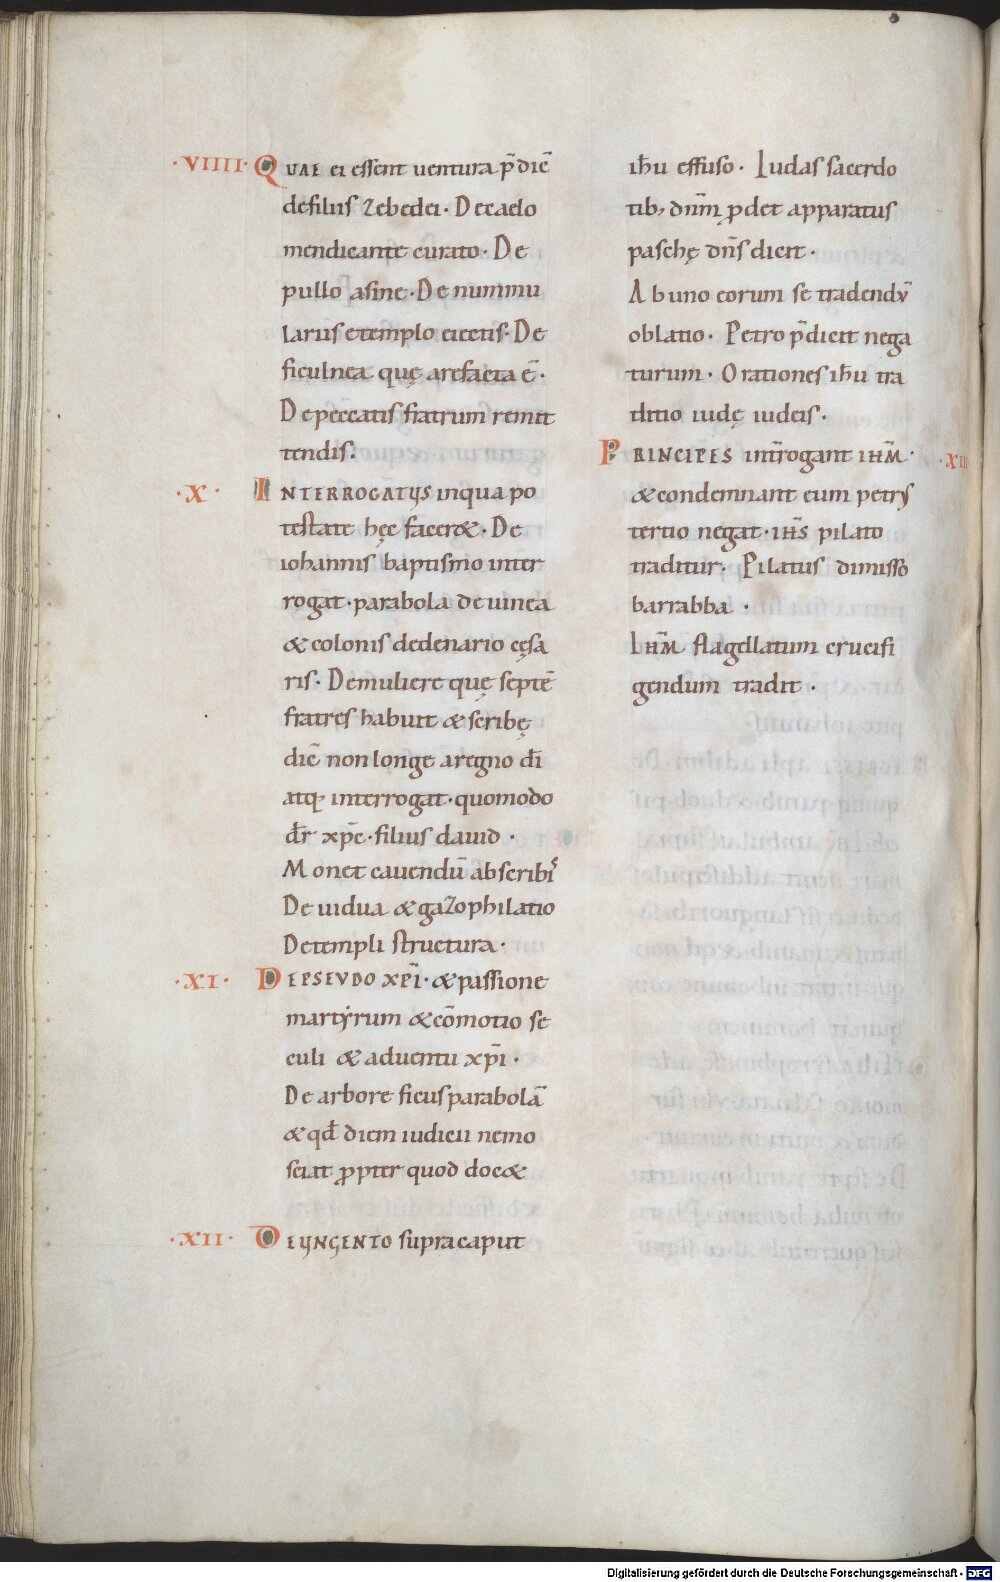 ·VIIII· QUAE ei essent uentura p̄diē
de filiis zebedei· De caelo
mendicante curato· De
pullo asine· De nummu
lariis e templo eiectis· De
ficulnea quę arefacta ē·
De peccatis fratrum remit
tendis.
·X· INTERROGATUS in qua po
testate hęc facer&· De
iohannis baptismo inter
rogat· parabola de uinea
& colonis de denario cęsa
ris· De muliere quę septē
fratres habuit & scribę
diē non longe a regno dī
atq; interrogat· quomodo
dr̄ xpc̄· filius dauid·
Monet cauendū ab scribis
De uidua & gazophilatio
De templi structura·
·XI· DE PSEUDO XPĪ· & passione
martyrum & cōmotio se
culi & aduentu xpī·
De arbore ficus parabolā
& qd̄ diem iudicii nemo
sciat ꝓpter quod doc&
·XII· DE UNGENTO supra caput
ihū effuso· Iudas sacerdo
tib; dnm̄ ꝓdet apparatus
paschę dns̄ dicit·
Ab uno eorum se tradendū
oblatio· Petro p̄dicit nega
turum· Orationes ihū tra
ditio iudę iudeis·
PRINCIPES introgant IHM̄·
& condemnant eum petrus
tertio negat· IHS̄ pilato
traditur· Pilatus dimisso
barrabba·
IHM̄ flagellatum crucifi
gendum tradit·
Digitalisierung gefördert durch die Deutsche Forschungsgemeinschaft - DFG